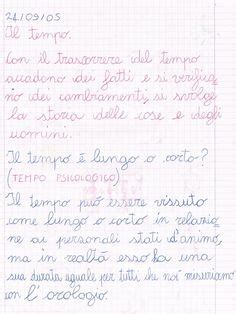 24/09/05
Il tempo.
Con il trascorrere del tempo
accadono dei fatti e si verifica
no dei cambiamenti, si svolge
la storia delle cose e degli
uomini.
Il tempo è lungo o corto?
(TEMPO PSICOLOGICO)
Il tempo può essere vissuto
come lungo o corto in relazio
ne ai personali stati d'animo,
ma in realtà esso ha una
sua durata uguale per tutti che noi misuriamo
con l'orologio.